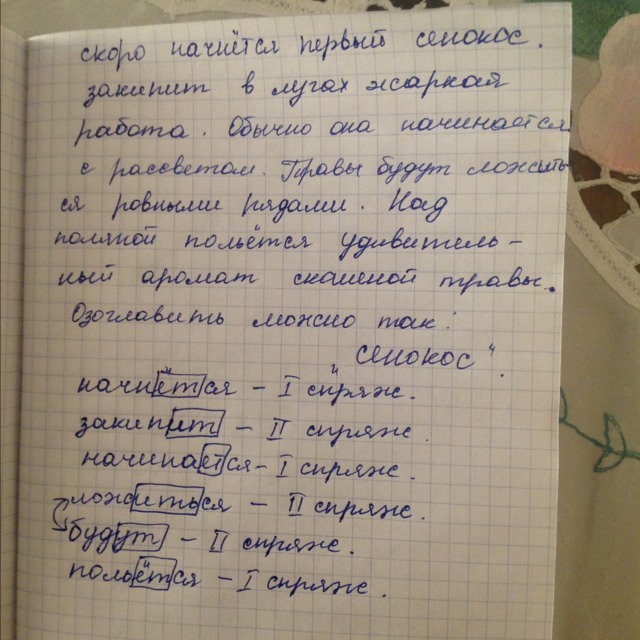 скоро начнётся первый сенокос.
закипит в лугах жаркая
работа. Обычно она начинается
с рассветом. Травы будут ложить
ся ровными рядами. Над
поляной польётся удивитель-
ный аромат скошеной травы.
Озоглавить можно так:
"сенокос".
начнётся - I спряж.
закипит - II спряж.
начинается - I спряж.
ложиться - II спряж.
будут - II спряж.
польётся - I спряж.